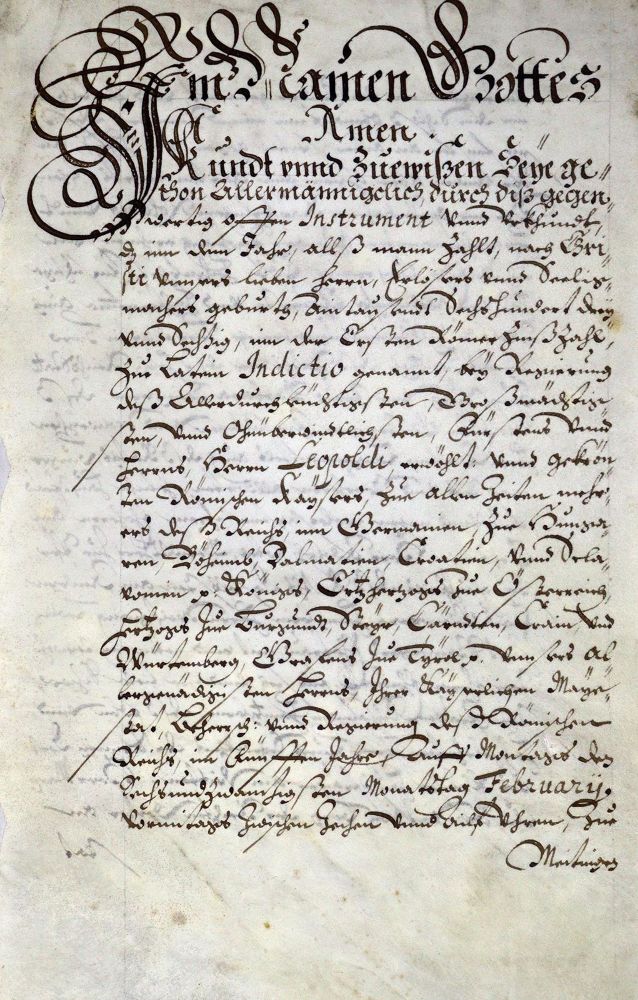 Im Namen Gottes
Amen.
Kundt vnnd Zuewißen Seye ge-
thon Allermänniglich, durch diß gegen-
wertig offen Instrument vnnd Vrkhundt,
dz inn dem Jahr, allß mann Zahlt, nach Cri-
sti vnnsers lieben Herrn, Erlösers vnnd Seelig-
machers geburth, Aintausendt Sechshundert drey
vnnd Sechzig, inn der Ersten Römer Zinß Zahl,
Zue Latein Indictio genannt, bey Regierung
deß Allerdurchleüchtigisten, Großmächtigi-
sten, vnnd Ohnüberwindtlichsten, Fürstens vnnd
Herrns, Herrn Leopoldi erwöhlt vnnd gekrön-
ten Römischen Kaysers, Zue allen Zeiten mehr-
ers deß Reichs, inn Germanien, Zue Hunga-
ren, Böhaimb, Dalmatien, Croatien, vnnd Scla-
vonien p. Königs, Ertzhertzogs Zue Österreich,
Hertzogs Zue Burgundt, Steyr, Cärndten, Crain, vnd
Württemberg, Grafens Zue Tyrol p. vnnsers Al-
lergenädigisten Herrns, Ihrer Kayserlichen Maye-
stat, Beherrsch: vnnd Regierung deß Römischen
Reichs, im Fünfften Jahre, auff Montags den
Sechsundzwainzigsten Monatstag February,
Vormitags Zwischen Zehen vnnd ailf Vhren, Zue
Meitingen